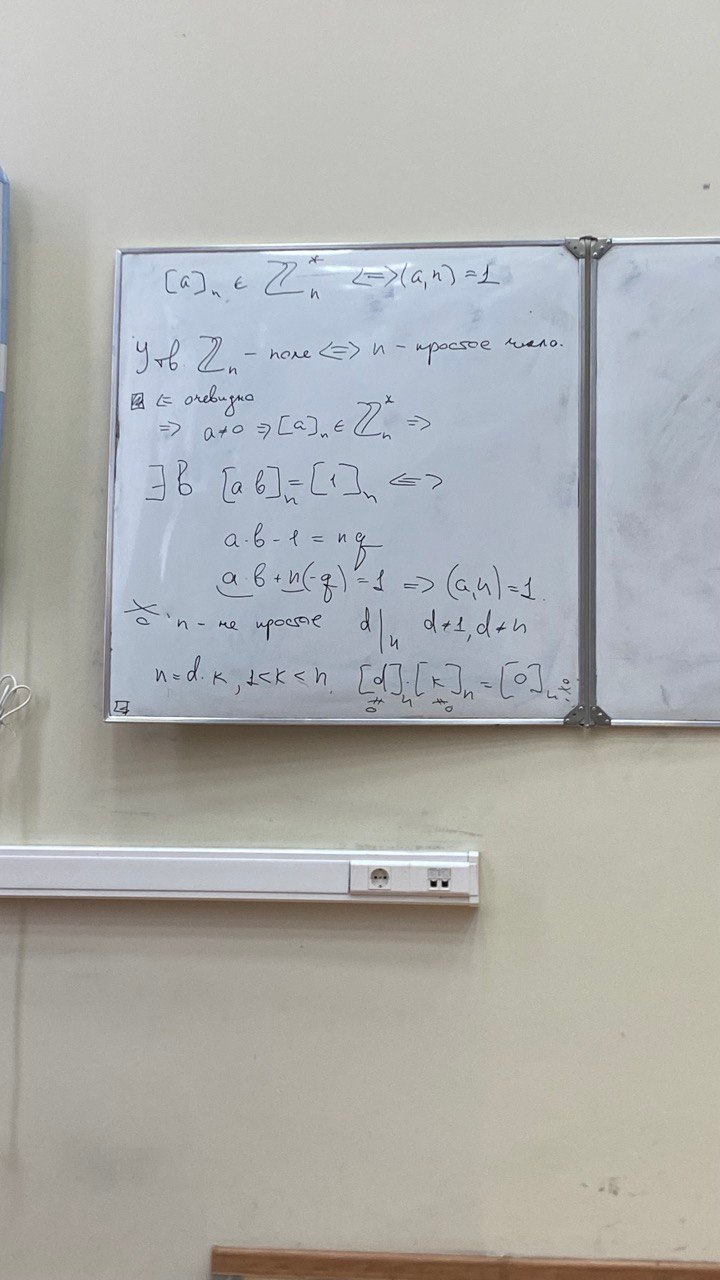 [a]ₙ ∈ ℤₙ* <=> (a,n) = 1
Утв. ℤₙ - поле <=> n - простое число.
<= очевидно
=> a≠0 => [a]ₙ ∈ ℤₙ* =>
∃ b [a b]ₙ = [1]ₙ <=>
a·b - 1 = nq
a·b + n(-q) = 1 => (a,n) = 1.
n - не простое d|n d≠1, d≠n
n = d·k, 1<k<n. [d]ₙ·[k]ₙ = [0]ₙ
≠0 ≠0